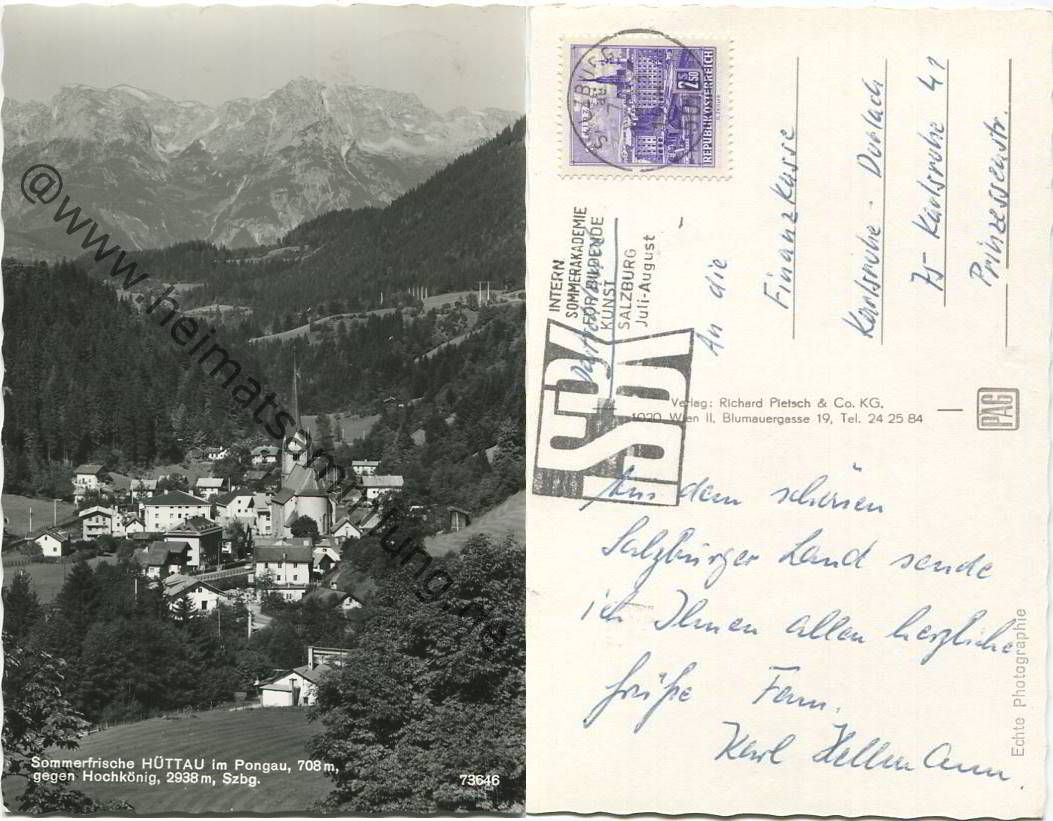 @www.heimatsammlung.de
Sommerfrische HÜTTAU im Pongau, 708 m,
gegen Hochkönig, 2938 m, Szbg.
73646
SALZBURG
2.50
REPUBLIK ÖSTERREICH
INTERN
SOMMERAKADEMIE
FÜR BILDENDE
KUNST
SALZBURG
Juli-August
An die
Finanzkasse
Karlsruhe - Durlach
75 Karlsruhe 41
Prinzessenstr.
Verlag: Richard Pietsch & Co. KG.
1020 Wien II, Blumauergasse 19, Tel. 24 25 84
PAG
Aus dem schönen
Salzburger Land sende
ich Ihnen allen herzliche
Grüße Fam.
Karl Hellmann
Echte Photographie